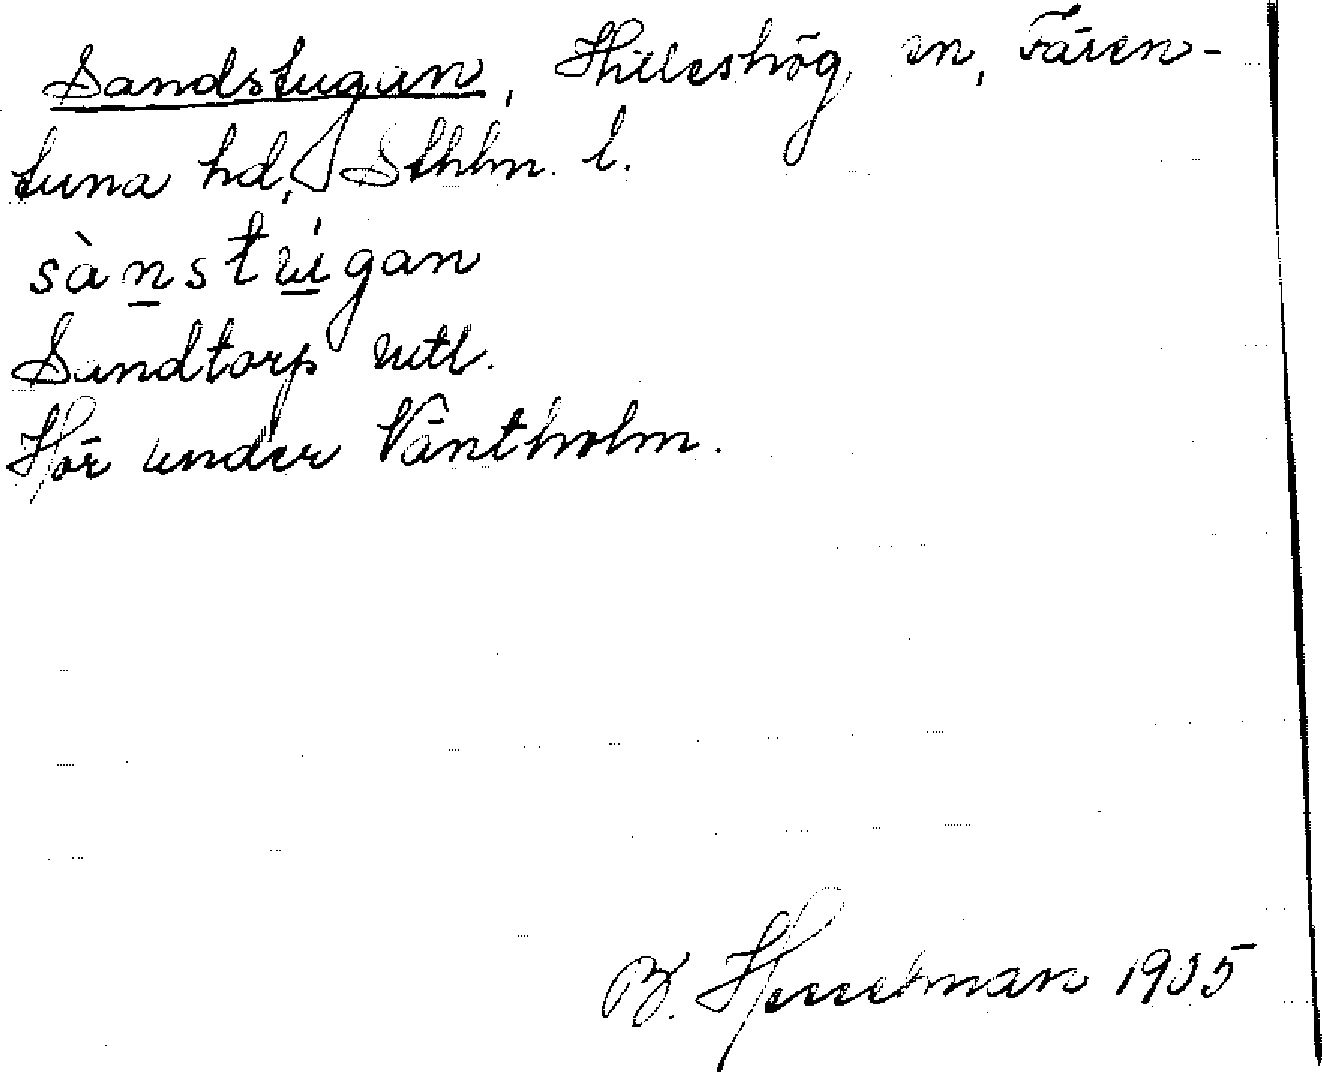 Sandstugan, Hilleshög sn, Fären-
tuna hd, Sthlm. l.
sànstu̍gan
Sandtorp utt.
Hör under Väntholm.
B. Hesselman 1935